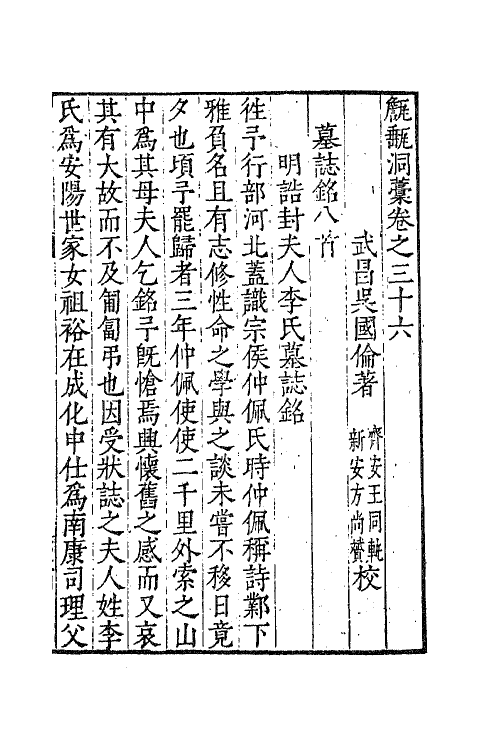 甔甀洞藁卷之三十六
武昌吳國倫著
齊安王同軌
新安方尚贇校
墓誌銘八首
明誥封夫人李氏墓誌銘
徃予行部河北蓋識宗侯仲佩氏時仲佩稱詩鄴下
雅負名且有志修性命之學與之談未嘗不移日竟
夕也頃予罷歸者三年仲佩使使二千里外索之山
中爲其母夫人乞銘予旣愴焉興懷舊之感而又哀
其有大故而不及匍匐弔也因受狀誌之夫人姓李
氏爲安陽世家女祖裕在成化中仕爲南康司理父